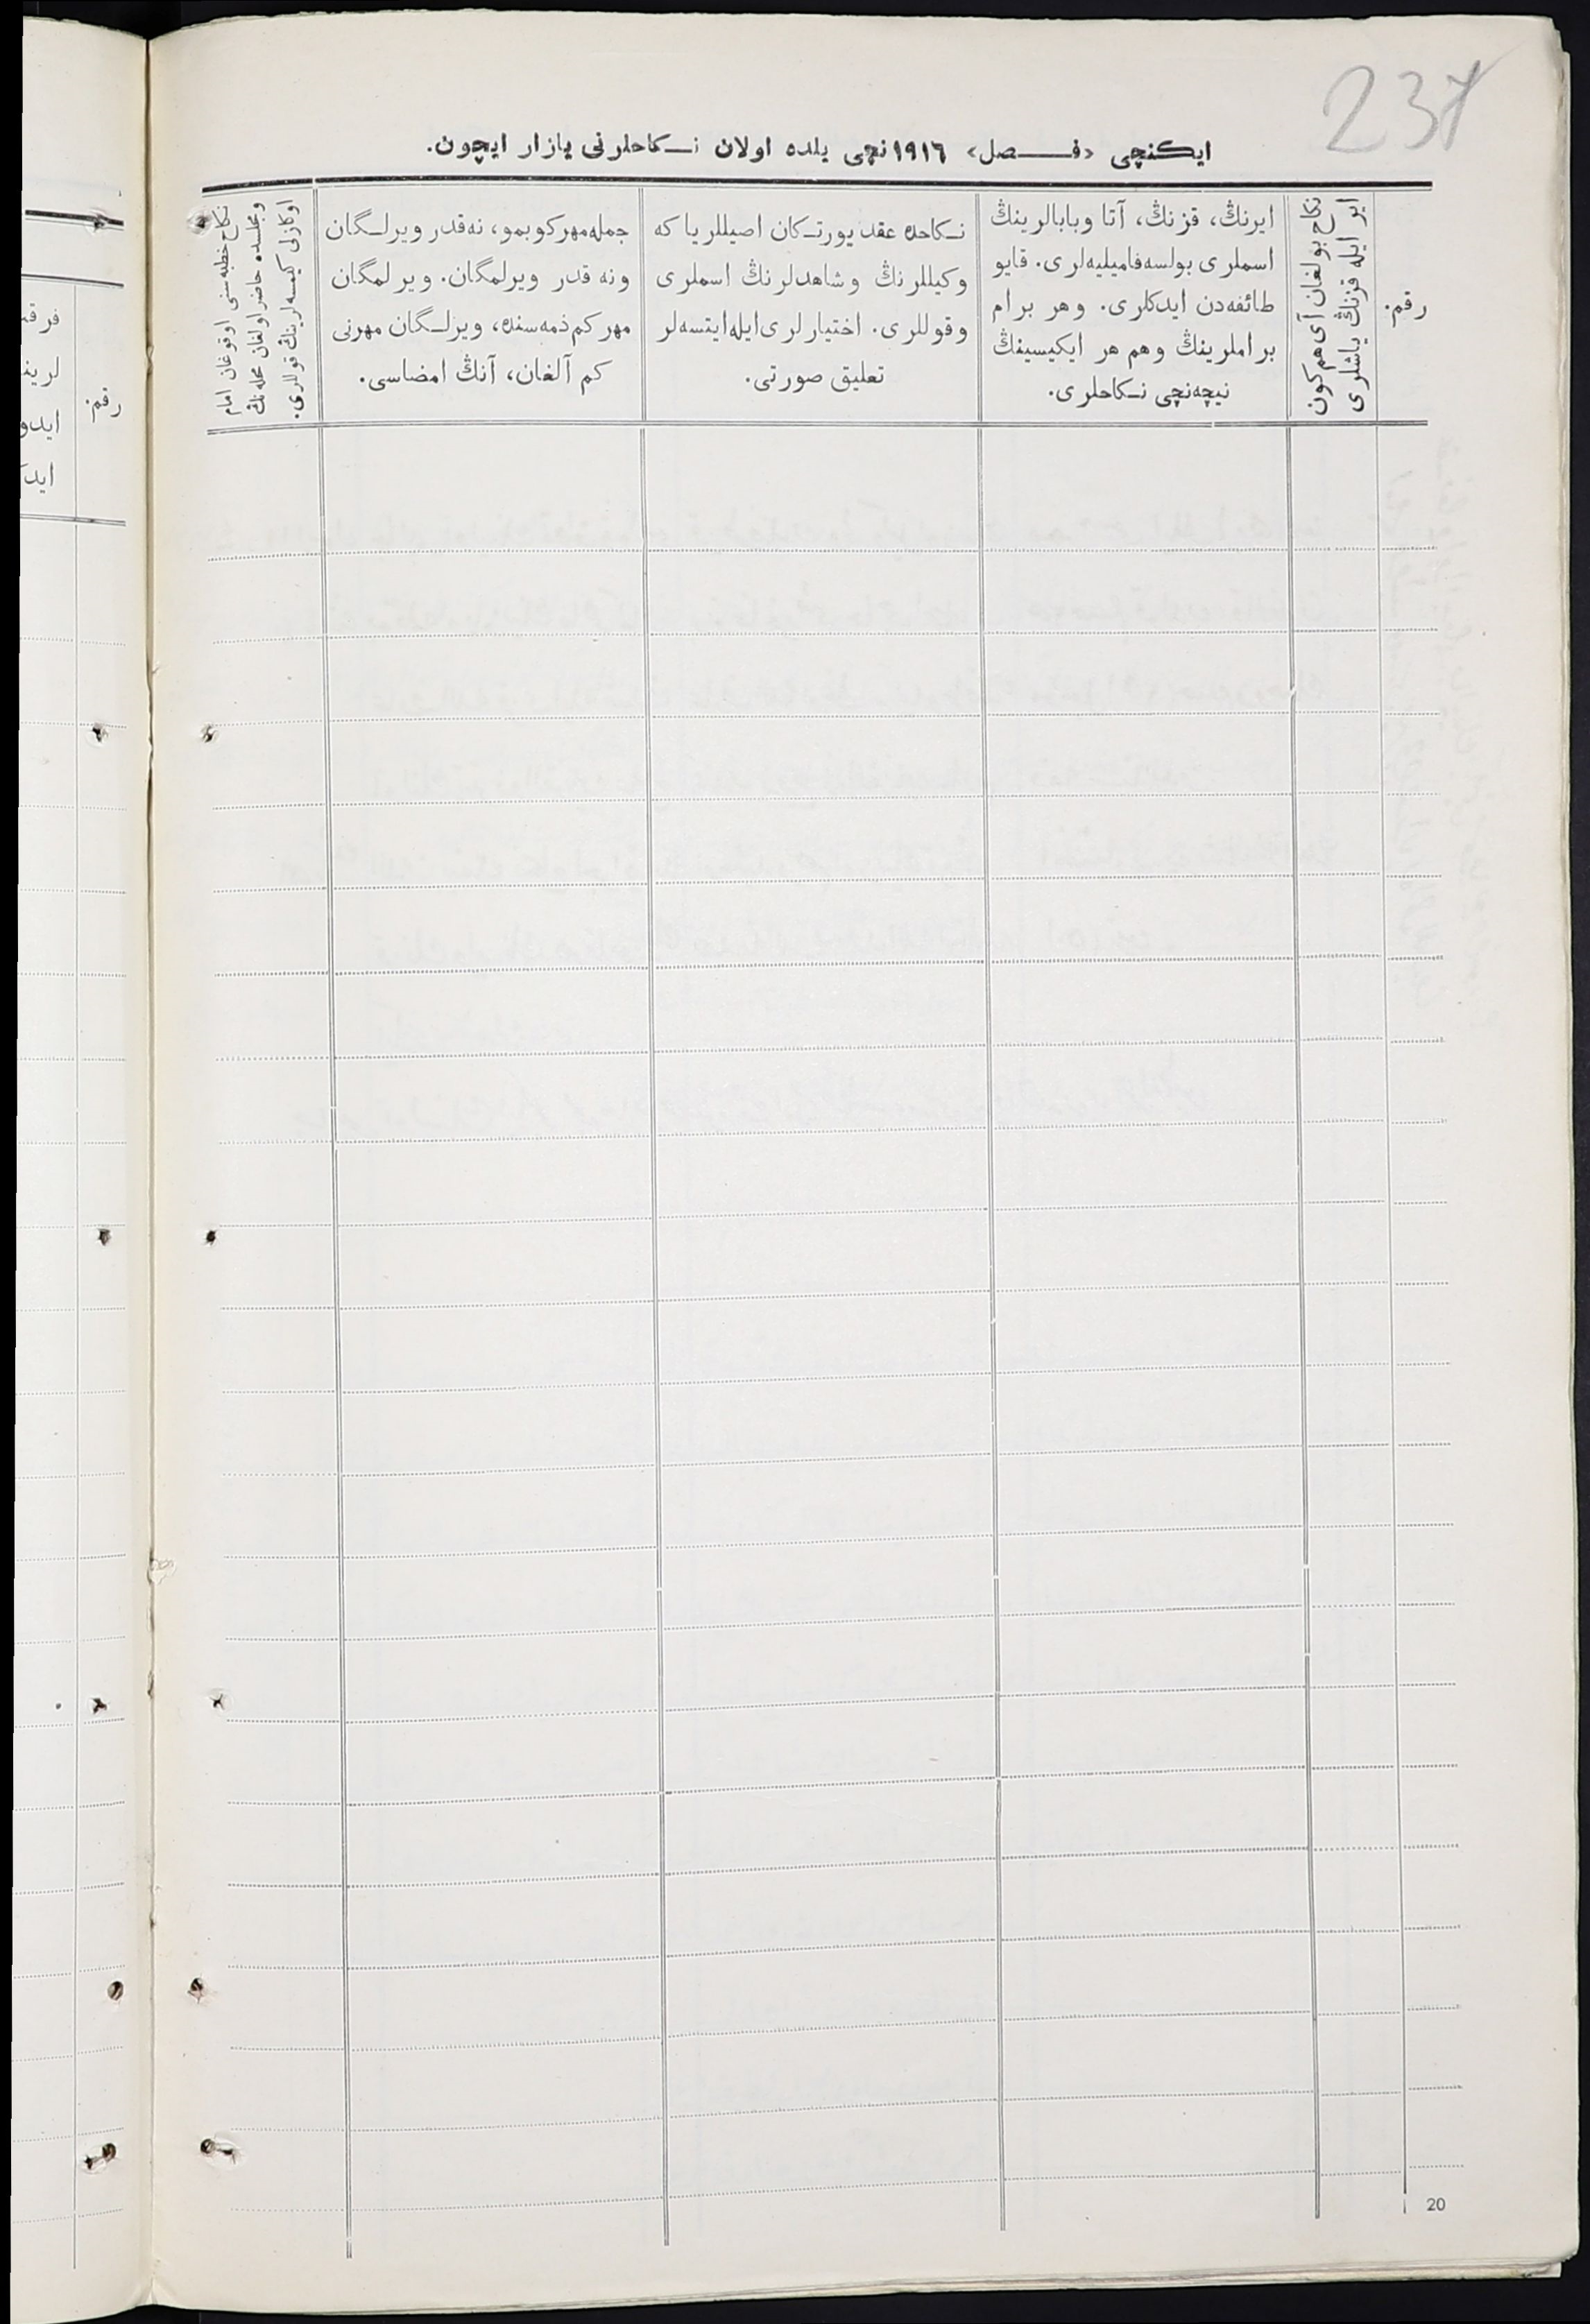 237
ایكنچی «فـــصل» ١٩١٦نچی یلده اولان نـكاحلرنی یازار ایچون.
رقم.
نكاح بولغان آی هم كون
ایر ایله قزنڭ یاشلری
ایرنڭ، قزنڭ، آتا وبابالرینڭ
اسملری بولسه فامیلیه‌لری. قایو
طائفه‌دن ایدكلری. وهر برام
براملرینڭ وهم هر ایكیسینڭ
نیچه‌نچی نـكاحلری.
نـكاحده عقد یورتـكان اصیللر یا كه
وكیللرنڭ وشاهدلرنڭ اسملری
وقوللری. اختیارلری ایله ایتسه‌لر
تعلیق صورتی.
جمله مهر كوبمو، نه قدر ویرلـگان
ونه قدر ویرلمگان. ویرلمگان
مهر كم ذمه سنده، ویرلـگان مهرنی
كم آلغان، آنڭ امضاسی.
نكاح خطبه سنی اوقوغان امام
ومجلسده حاضر اولغان محله‌نڭ
اوكازلی كیمسه‌لرینڭ قوللری.
رقم.
فرقـ
لرینـ
ایدو
ایدكـ
20